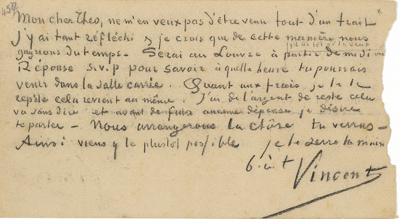 459
Mon cher Theo, ne m'en veux pas d'être venu tout d'un trait
j'y ai tant réfléchi & je crois que de cette manière nous
gagnons du temps. Serai au Louvre à partir de midi
Réponse s.v.p. pour savoir à quelle heure tu pourrais
venir dans la salle carrée. Quant aux frais, je te le
repète cela revient au même. J'ai de l'argent de reste cela
va sans dire et avant de faire aucune dépense je désire
te parler – Nous arrangerons la chôse tu verras –
Ainsi viens y le plustôt possible je te serre la main
b. à t.
Vincent